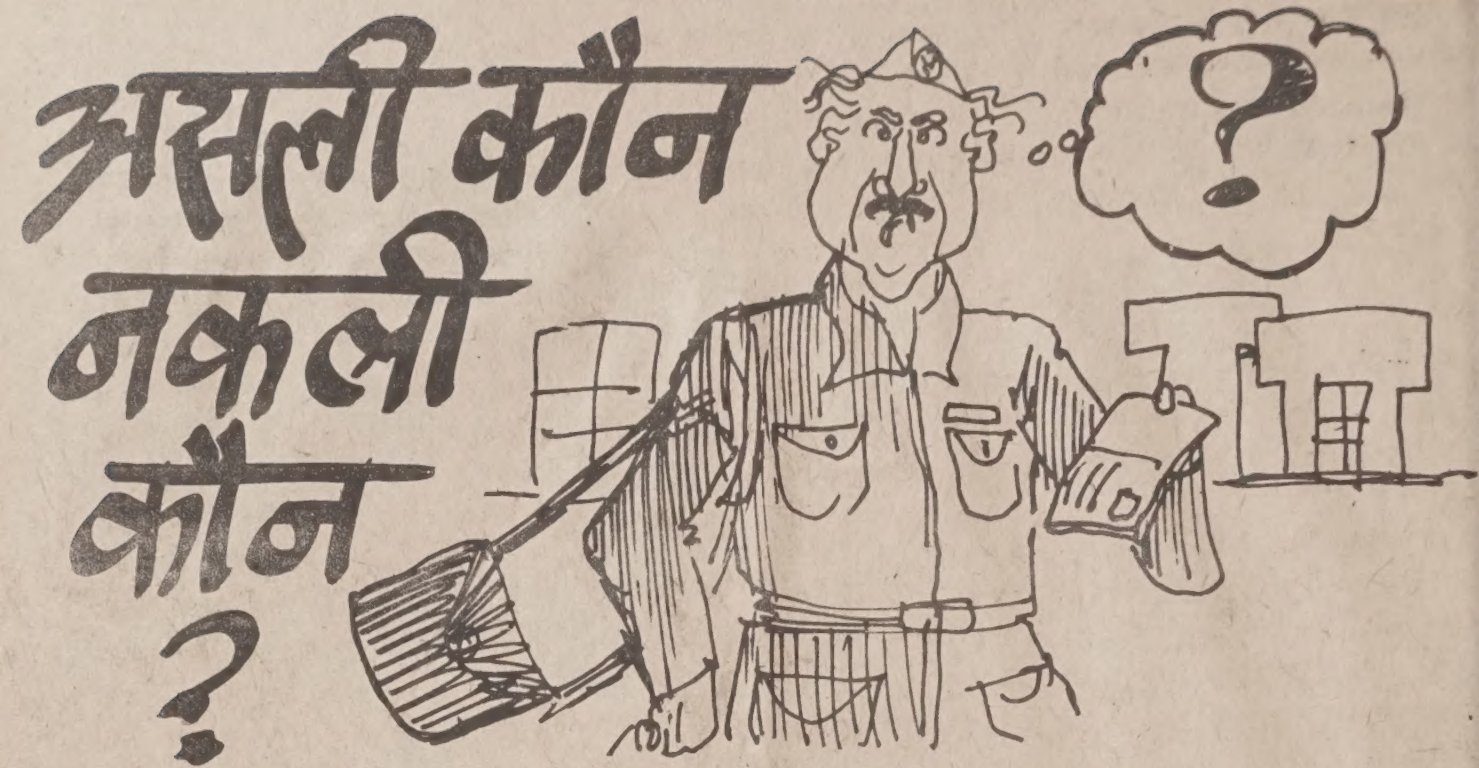 असली कौन
नकली
कौन
?
?